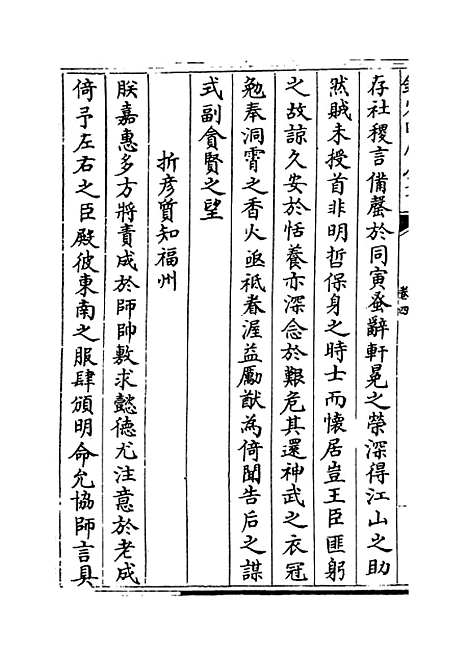 卷四
存社稷言備罄於同寅蚤辭軒冕之榮深得江山之助
然賊未授首非明哲保身之時士而懷居豈王臣匪躬
之故諒久安於恬養亦深念於艱危其還神武之衣冠
勉奉洞霄之香火亟祗眷渥益勵猷為倚聞告后之謀
式副貪賢之望
折彥質知福州
朕嘉惠多方將責成於師帥敷求懿德尤注意於老成
倚予左右之臣殿彼東南之服肆頒明命允協師言具